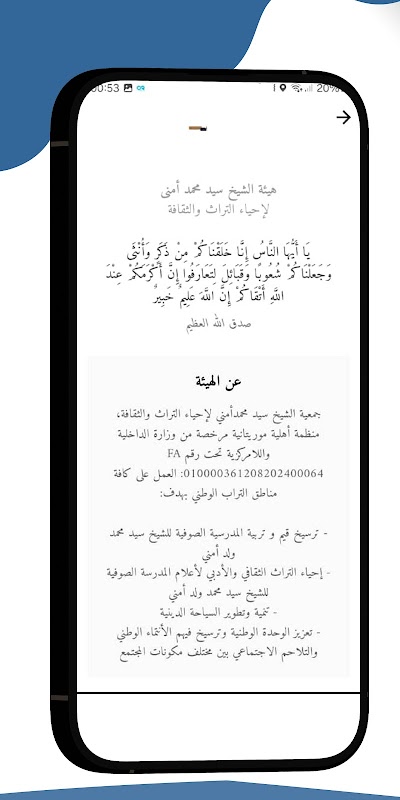 00:53
20%
هيئة الشيخ سيد محمد أمنى
لإحياء التراث والثقافة
يَا أَيُّهَا النَّاسُ إِنَّا خَلَقْنَاكُمْ مِنْ ذَكَرٍ وَأُنْثَى
وَجَعَلْنَاكُمْ شُعُوبًا وَقَبَائِلَ لِتَعَارَفُوا إِنَّ أَكْرَمَكُمْ عِنْدَ
اللَّهِ أَتْقَاكُمْ إِنَّ اللَّهَ عَلِيمٌ خَبِيرٌ
صدق الله العظيم
عن الهيئة
جمعية الشيخ سيد محمدأمني لإحياء التراث والثقافة،
منظمة أهلية موريتانية مرخصة من وزارة الداخلية
واللامركزية تحت رقم FA
010000361208202400064: العمل على كافة
مناطق التراب الوطني بهدف:
- ترسيخ قيم و تربية المدرسية الصوفية للشيخ سيد محمد
ولد أمني
- إحياء التراث الثقافي والأدبي لأعلام المدرسة الصوفية
للشيخ سيد محمد ولد أمني
- تنمية وتطوير السياحة الدينية
- تعزيز الوحدة الوطنية وترسيخ فيهم الأنتماء الوطني
والتلاحم الاجتماعي بين مختلف مكونات المجتمع